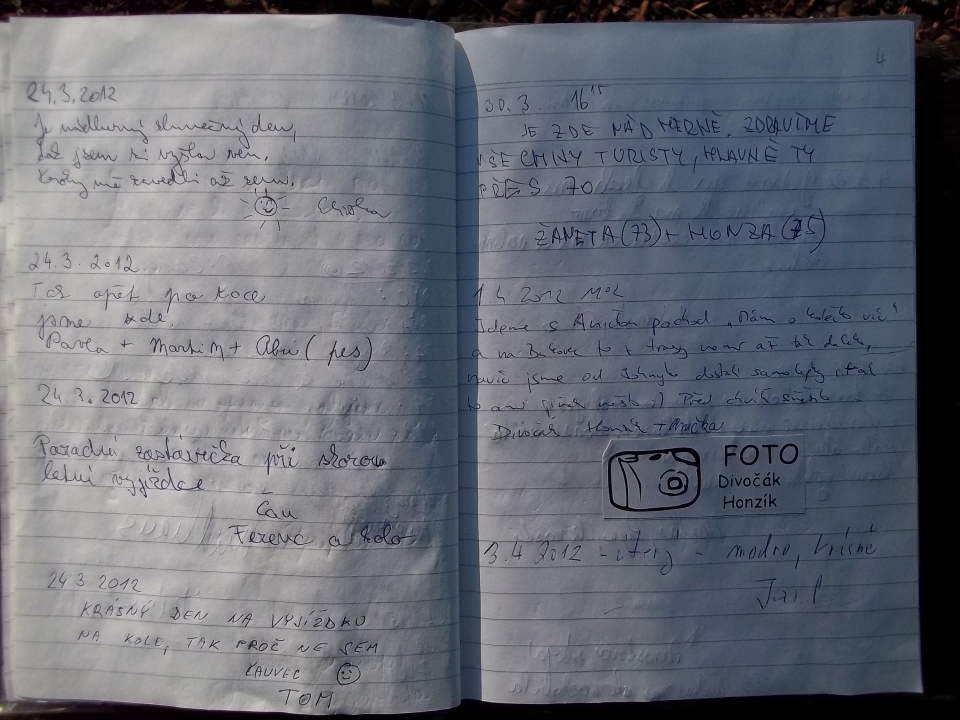 24.3.2012
Je nádherný slunečný den,
tak jsem si vyšla ven.
Kroky mě zavedli až sem.
24.3.2012
Tak opět po roce
jsme zde.
Pavla + Martin + Abu (pes)
24.3.2012
Parádní zastávečka při skorou
letní vyjížďce
Čau
Ferenc a kolo
24 3 2012
KRÁSNÝ DEN NA VYJÍŽDKU
NA KOLE, TAK PROČ NE SEM
KAUVEC
TOM
4
30.3. 16 15
JE ZDE NÁDHERNĚ. ZDRAVÍME
VŠECHNY TURISTY, HLAVNĚ TY
PŘES 70
ŽANETA (73) + HONZA (75)
1.4 2012
Jdeme s Aničkou pochod „Mám o kolečko víc“
a na Bukovec to z trasy není až tak daleko,
navíc jsme od dostali samolepky
to ani jinak nešlo :) Před chvílí sněžilo
Divočák Honzík + Anička
FOTO
Divočák
Honzík
3.4 2012 - úterý - modro, krásně